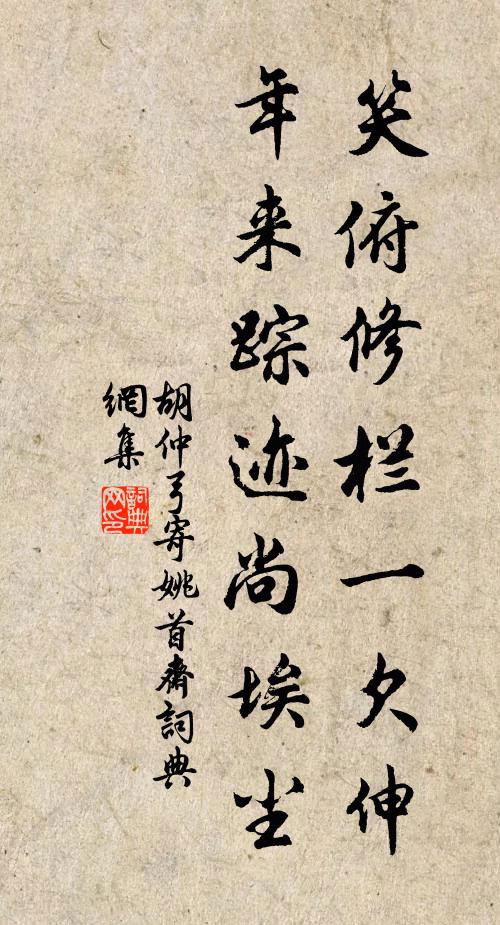 笑俯修栏一欠伸
年来踪迹尚埃尘
胡仲弓寄姚首斋詞典
網集
詞典网印